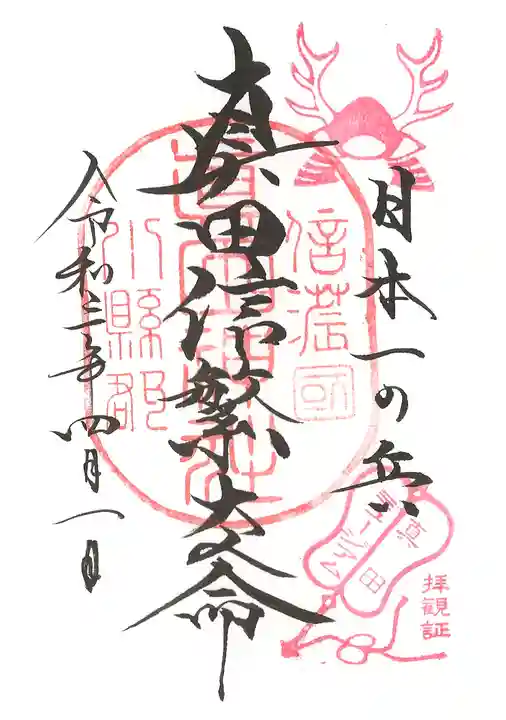 日本一の兵
真田信繁之命
令和三年四月一日
信濃國
小縣郡
真田
ミュージアム
拝観証